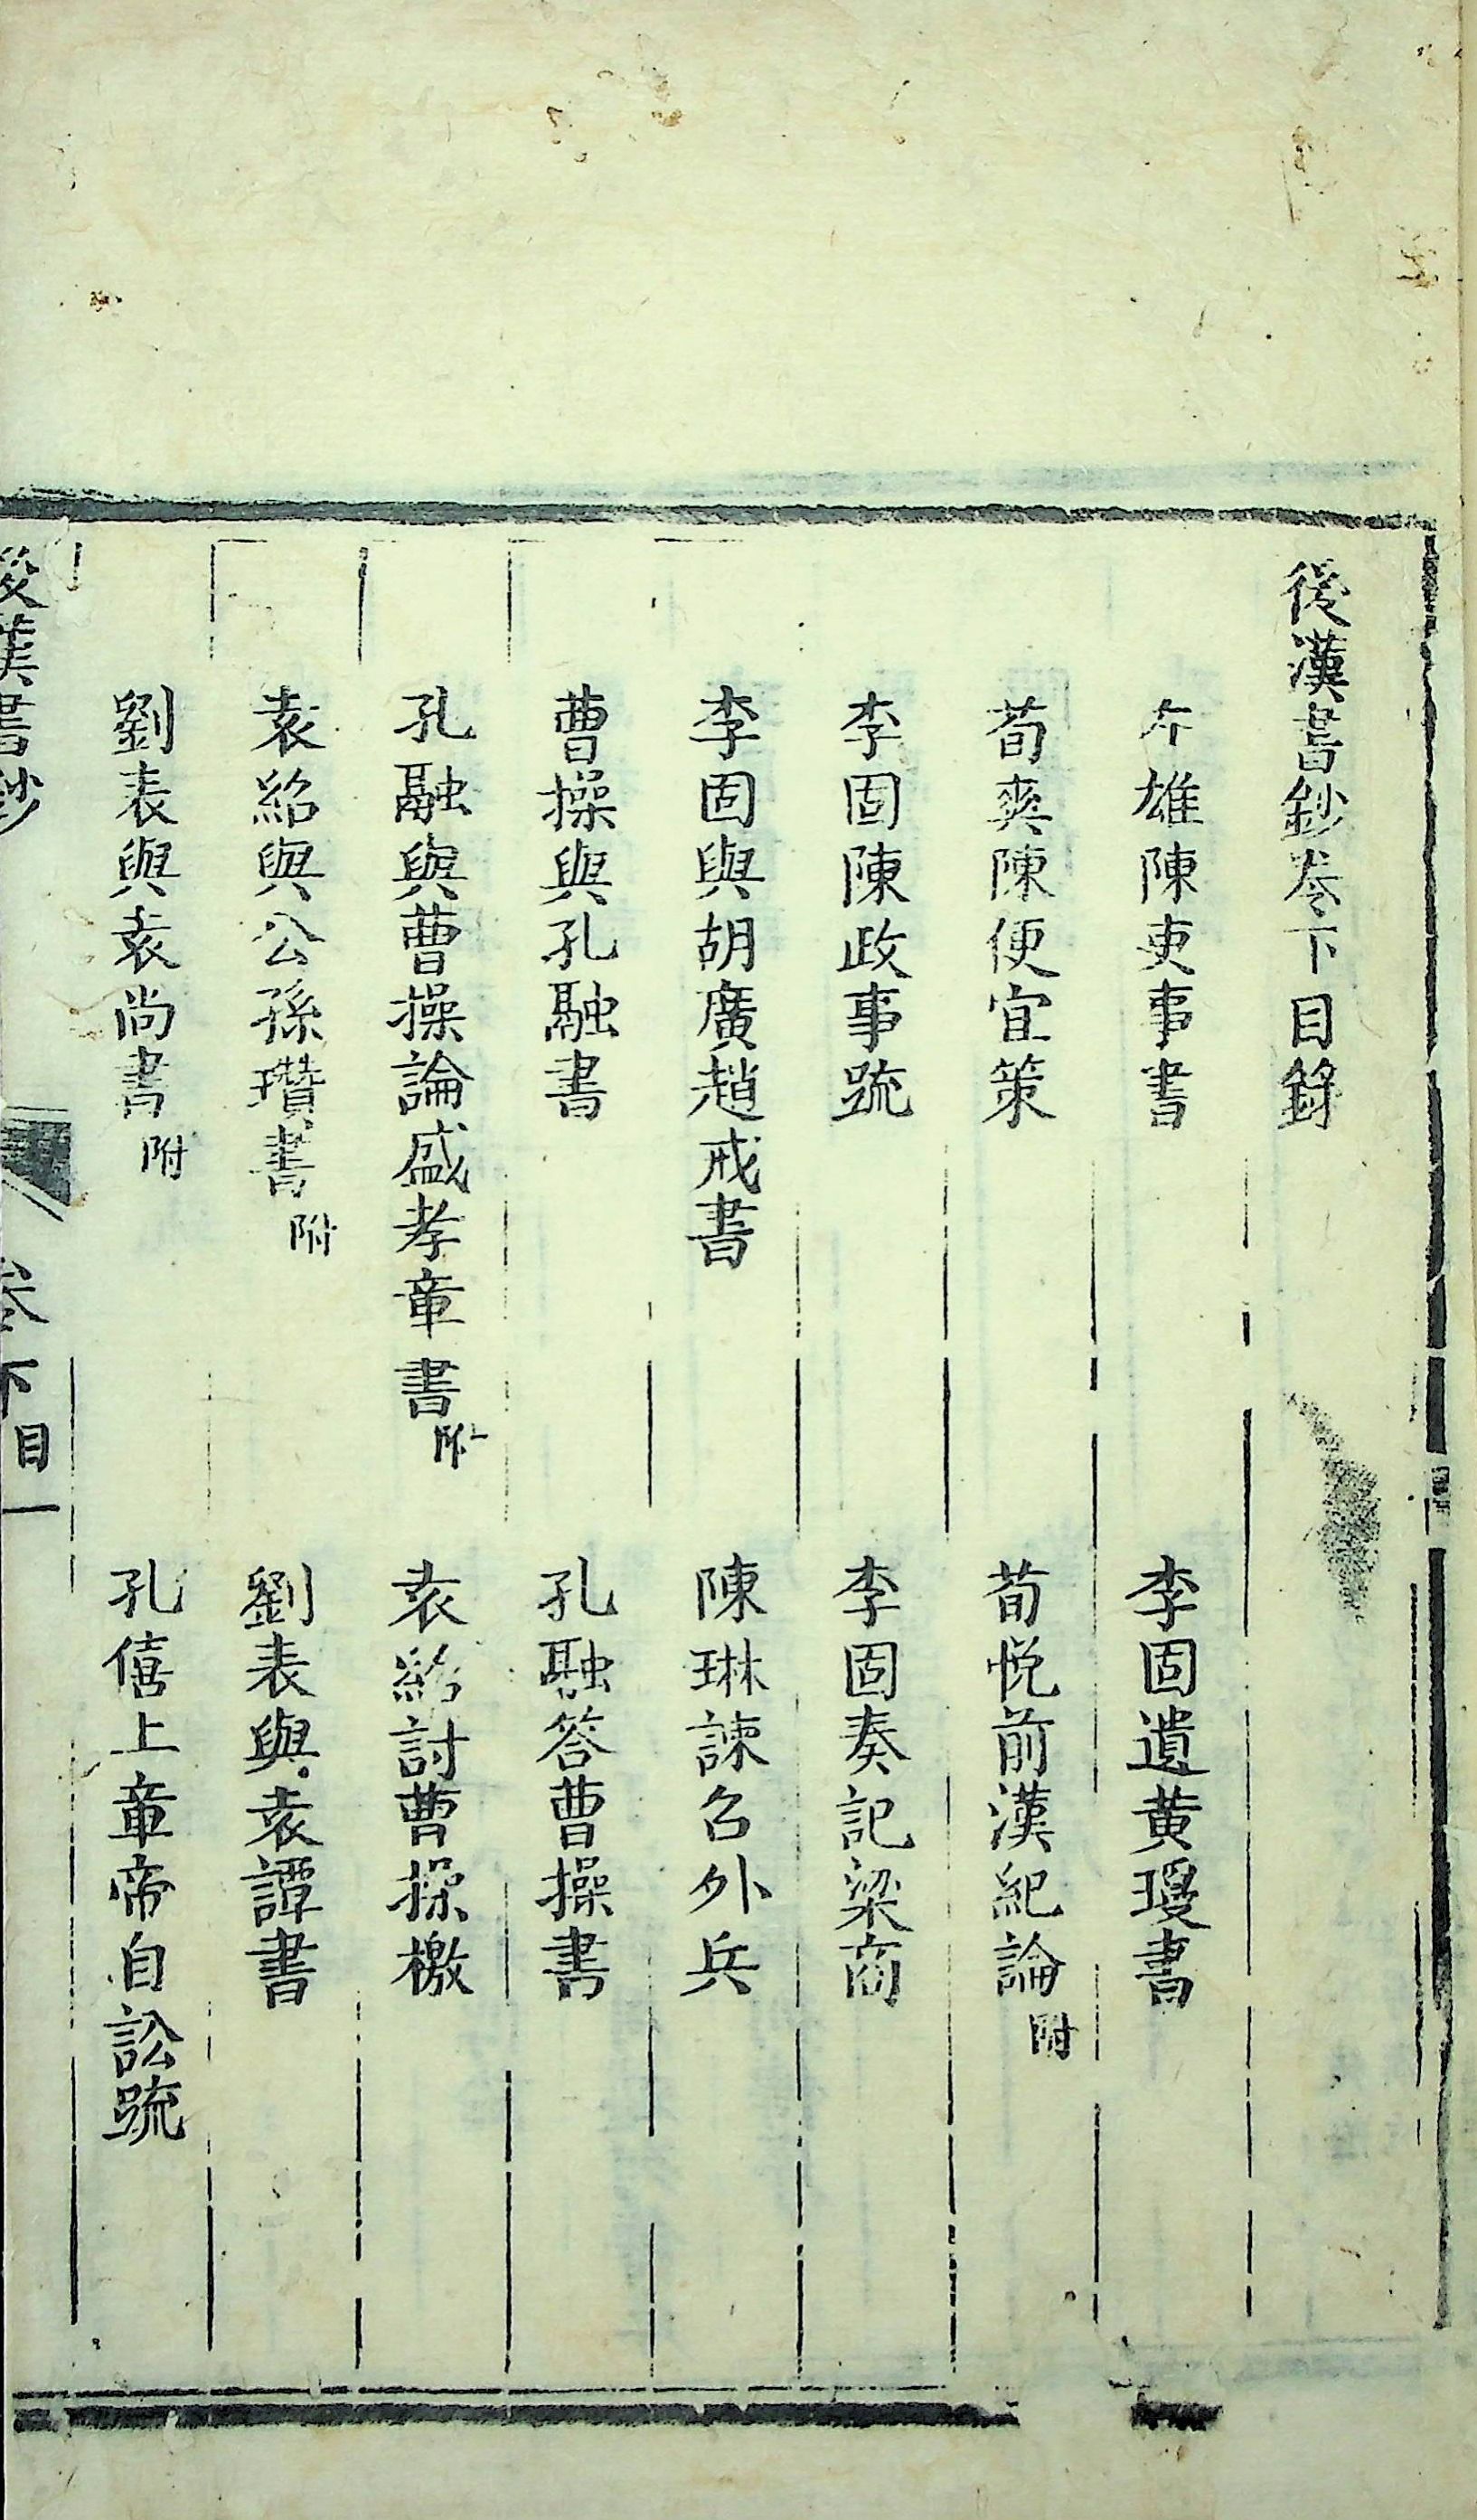 後漢書鈔卷下目錄
左雄陳吏事書 李固遺黃瓊書
荀爽陳便宜策 荀悅前漢紀論附
李固陳政事疏 李固奏記梁商
李固與胡廣趙戒書 陳琳諫召外兵
曹操與孔融書 孔融答曹操書
孔融與曹操論盛孝章書附 袁紹討曹操檄
袁紹與公孫瓚書附 劉表與袁譚書
劉表與袁尚書附 孔僖上章帝自訟疏
後漢書鈔 卷下目一